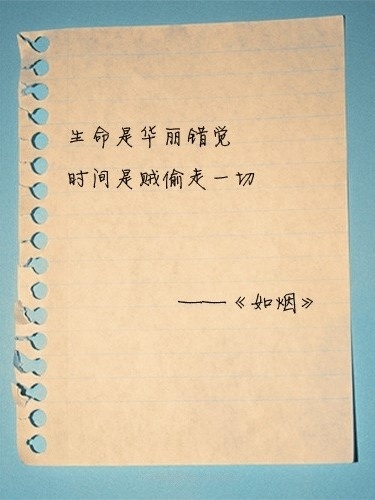 生命是华丽错觉
时间是贼偷走一切
——《如烟》